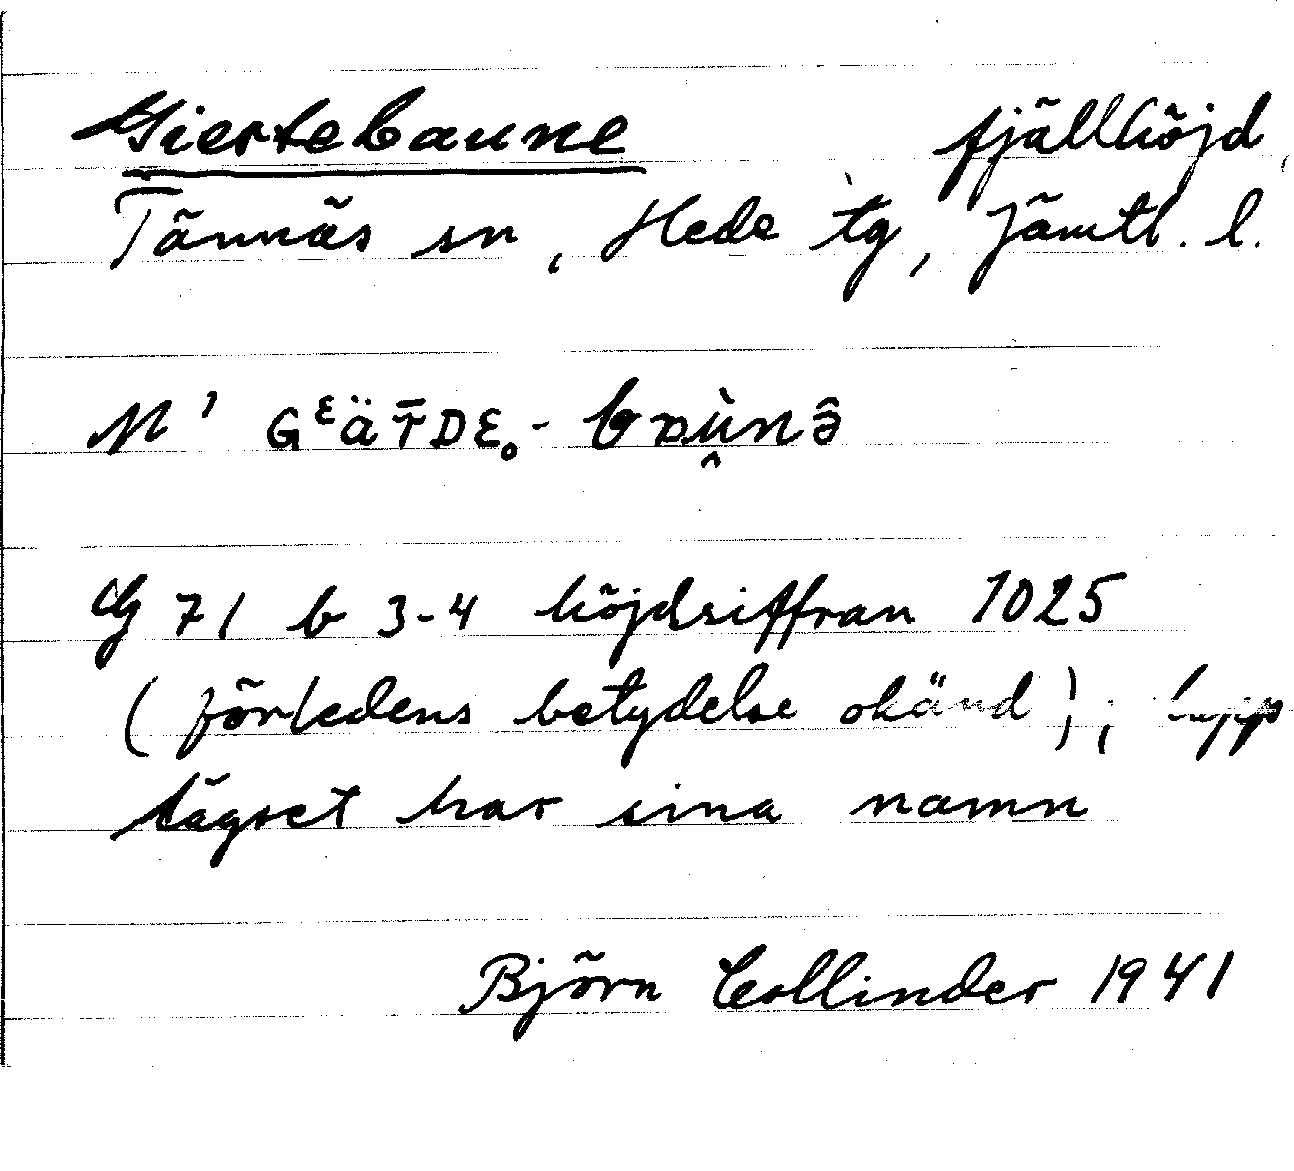 Giertebaune fjällhöjd,
Tännäs sn, Hede tg, Jämtl. l.
M' GᵋäT̄Dԑ˳- bɒṷ̀nə̂
G 71 b 3-4 höjdsiffran 1025
(förledens betydelse okänd); lapp
tågset har sina namn
Björn Collinder 1941